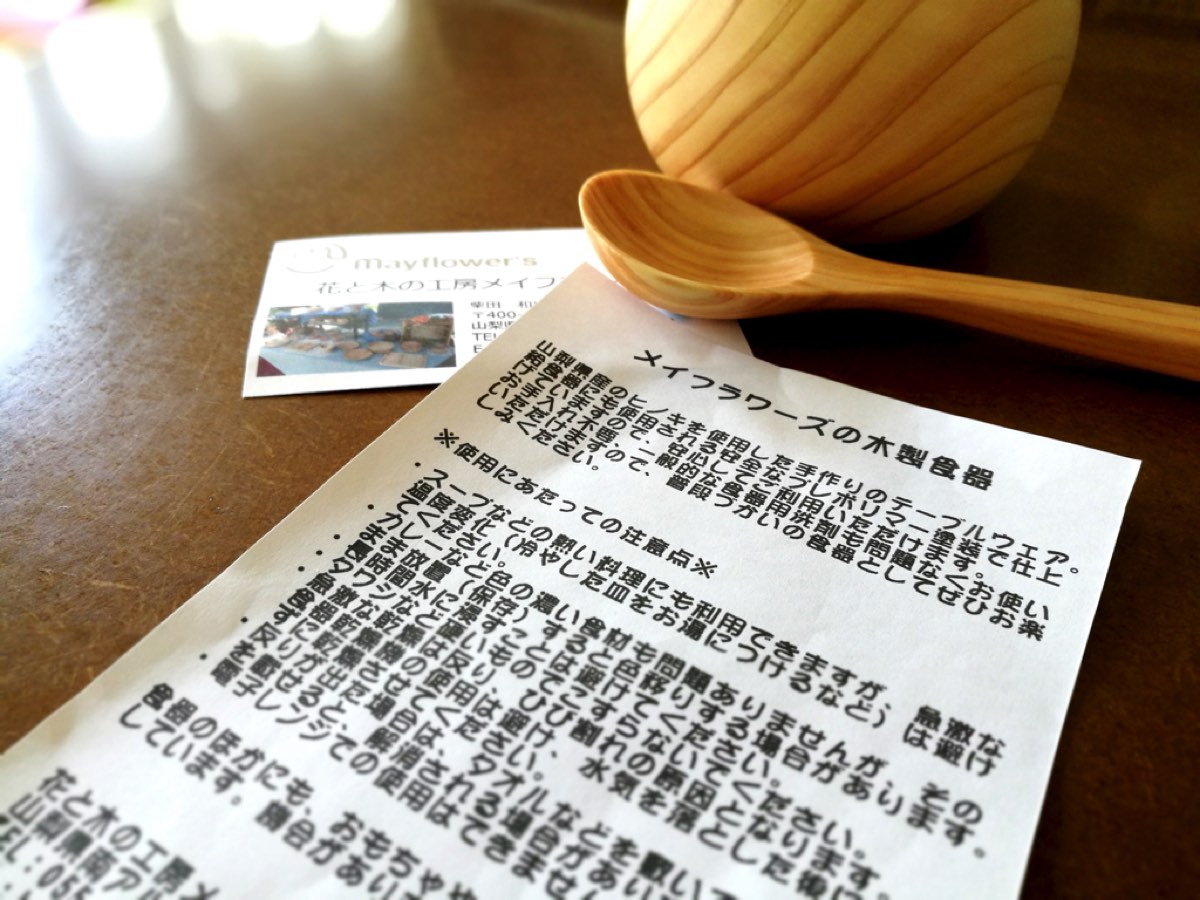 mayflower's
花と木の工房メイフ
柴田 和
〒400-
山梨県
TEL
メイフラワーズの木製食器
山梨県産のヒノキを使用した手作りのテーブルウェア。
給食器にも使用される安全なプレポリマー塗装で仕上
げていますので、安心してご利用いただけます。
お手入れも一般的な食器用洗剤も問題なくお使い
いただけますので、普段づかいの食器としてぜひお楽
しみください。
※使用にあたっての注意点※
・スープなどの熱い料理にも利用できますが、急激な
温度変化(冷やした皿をお湯につけるなど)は避け
てください。
・カレーなど色の濃い食材も問題ありませんが、その
まま放置(保存)すると色移りする場合があります。
・長時間水に浸すことは避けてください。
・タワシなど硬いものでこすらないでください。
・急激な乾燥は反り、ひび割れの原因となります。
食器乾燥機の使用は避け、水気を落とした後は
ずに乾燥させてください。
・反りが出た場合は、タオルなどを敷いて
を載せると、解消される場合があ
・電子レンジでの使用はできませ
食器のほかにも、おもちゃや
しています。機会があり
花と木の工房メ
山梨県南アル
TEL：055